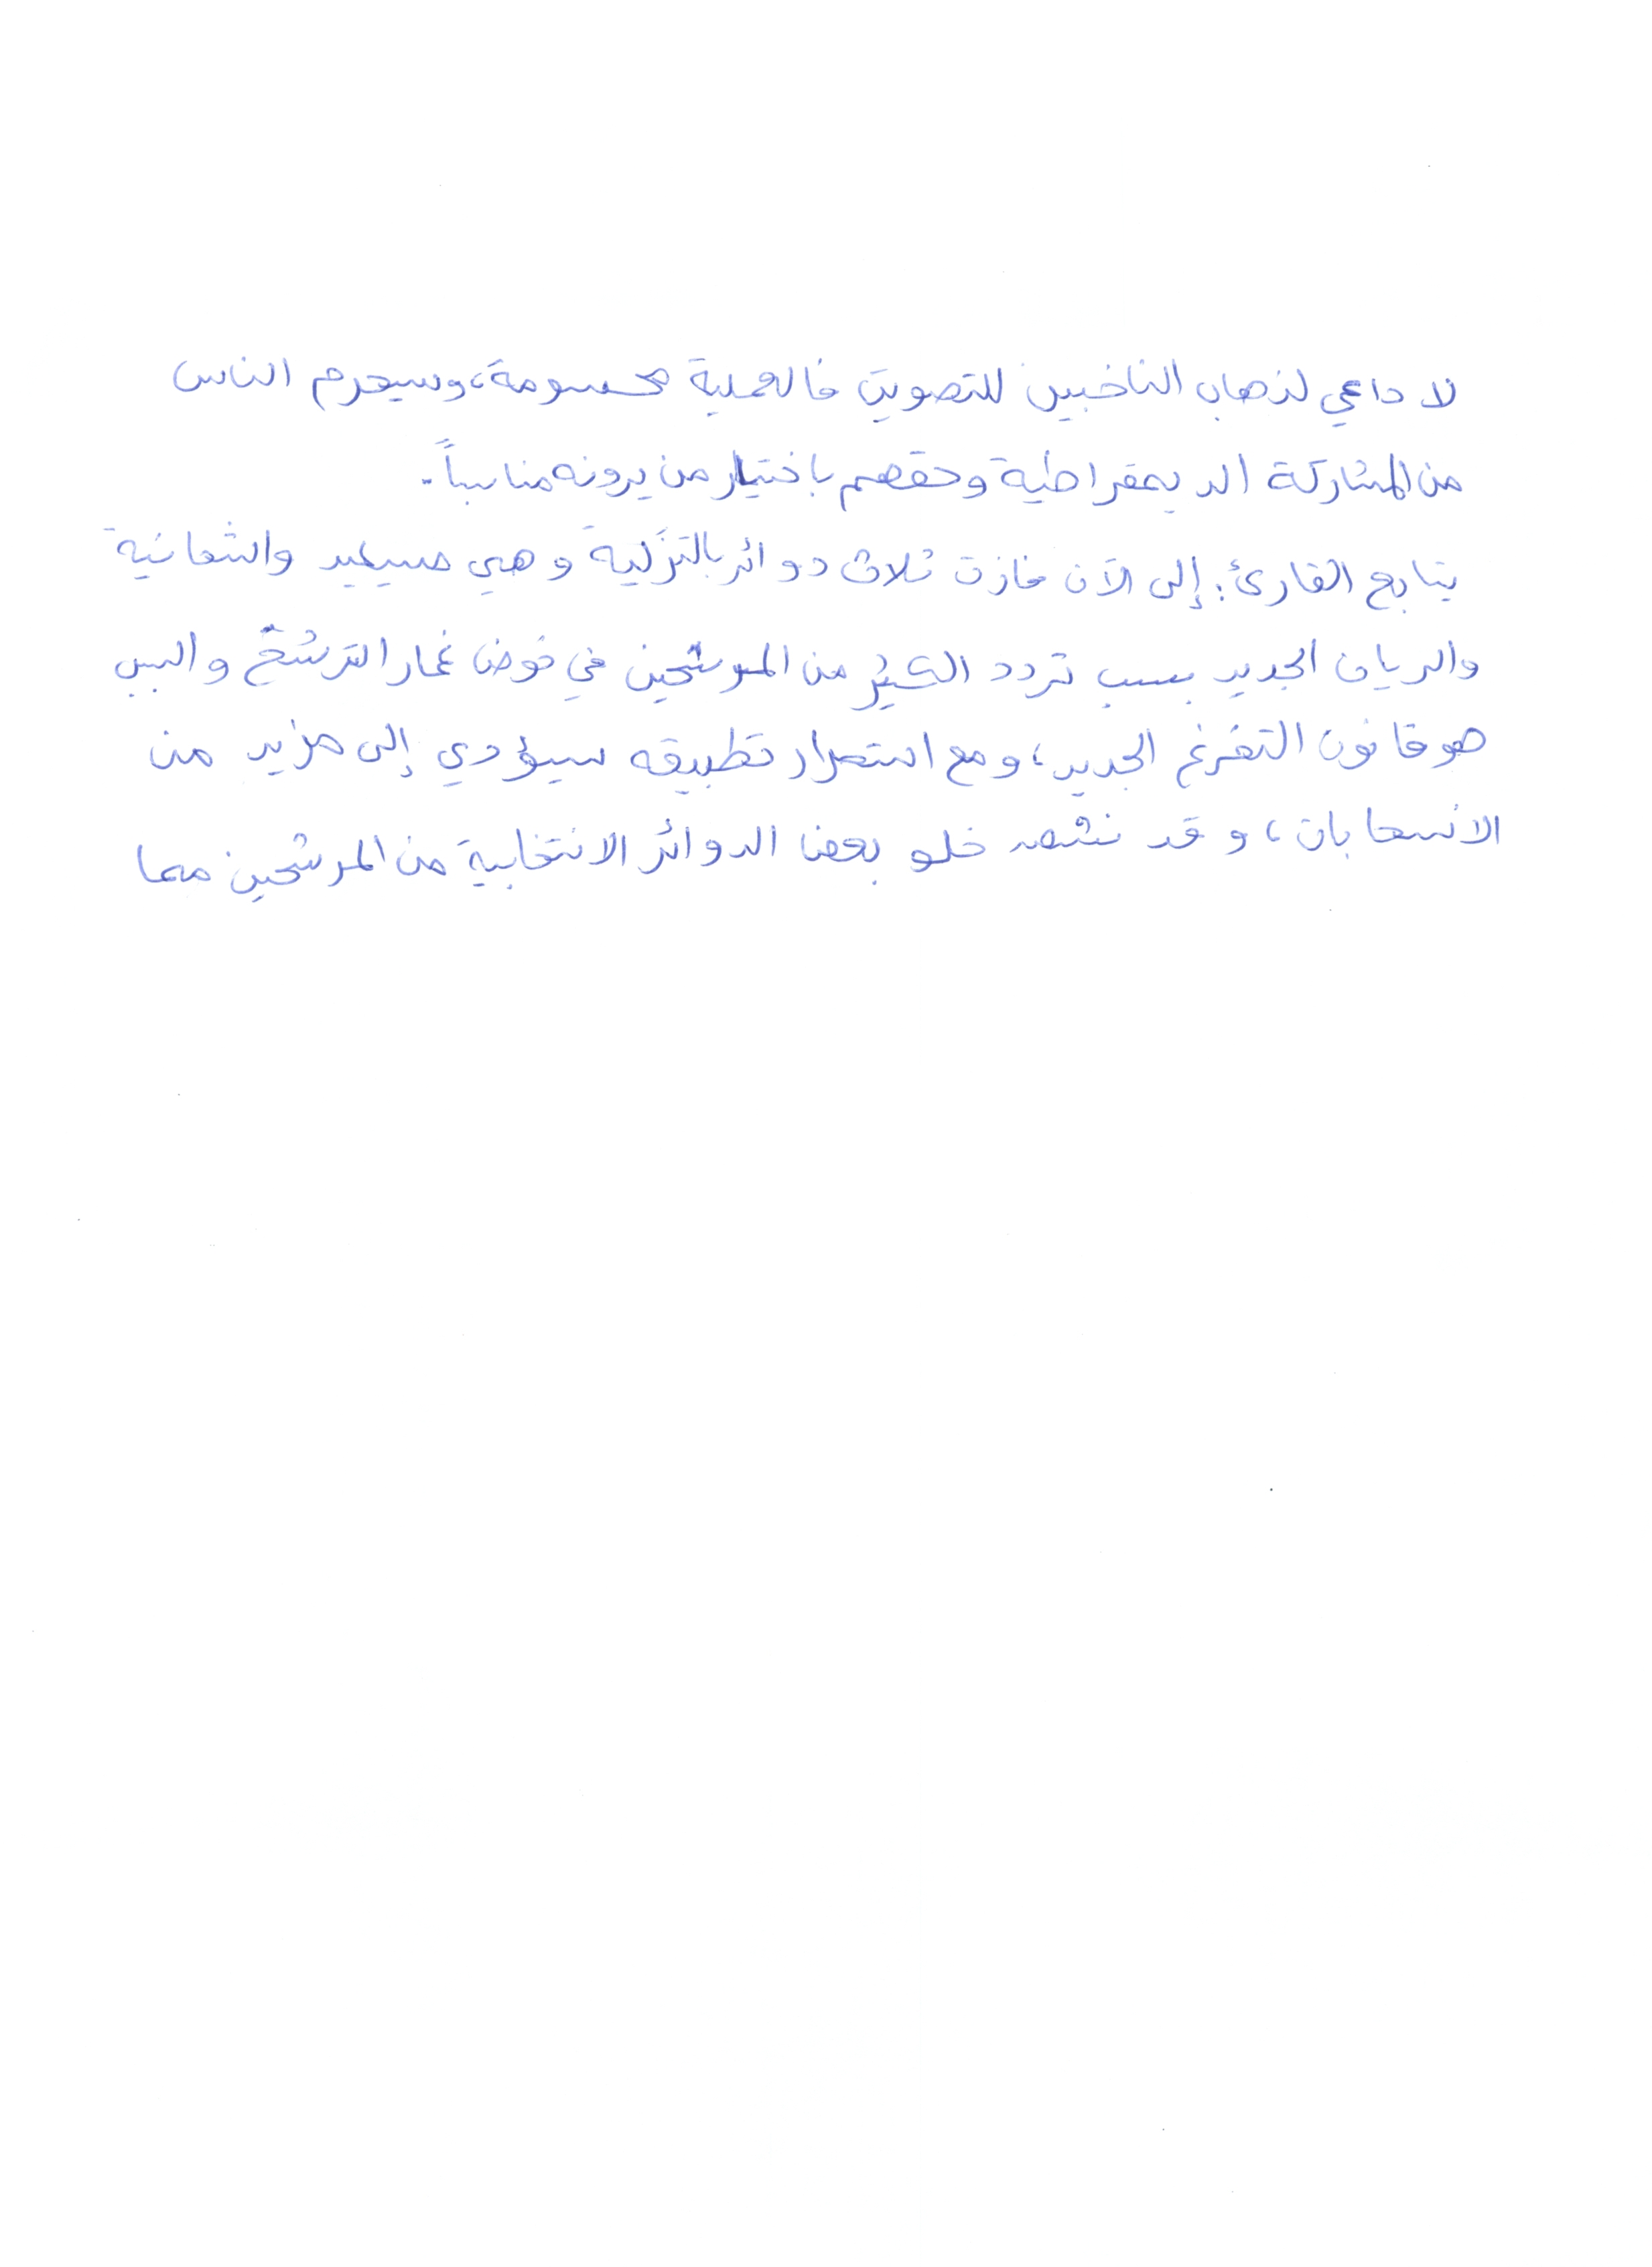 لا داعي لذهاب الناخبين للتصويت فالعملية محسومة، وسيحرم الناس
من المشاركة الديمقراطية وحقهم باختيار من يرونه مناسباً.
يتابع القارئ: إلى الآن فازت ثلاث دوائر بالتزكية وهي مسيمير والثمانية
والريان الجديد بسبب تردد الكثير من المرشحين في خوض غمار الترشح والسبب
هو قانون التفرغ الجديد، ومع استمرار تطبيقه سيؤدي إلى مزيد من
الانسحابات، وقد نشهد خلو بعض الدوائر الانتخابية من المرشحين مما